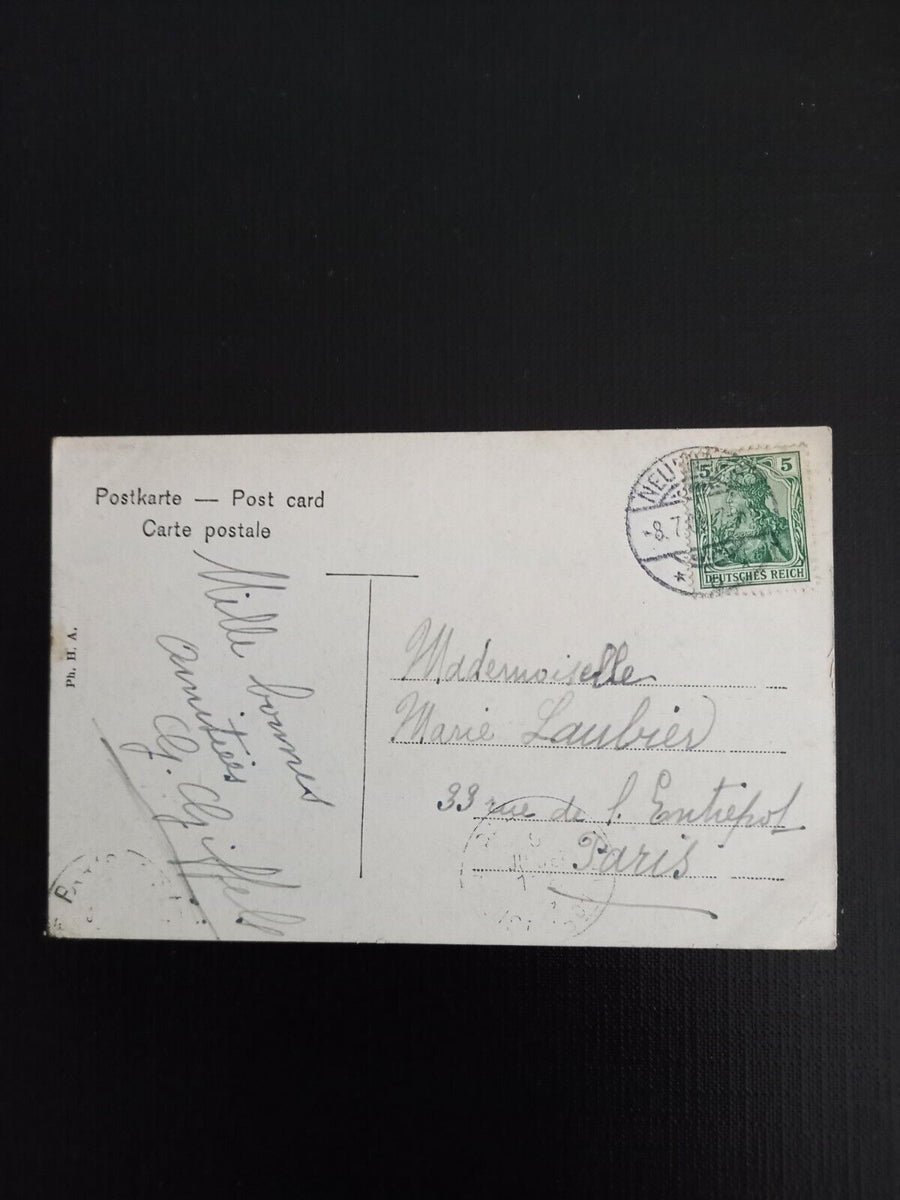 Postkarte — Post card
Carte postale
Ph. H. A.
Mille bonnes
amitiés
G.
Mademoiselle
Marie Laubier
33 rue de l'Entrepot
Paris
NEU
8.7
5 5
DEUTSCHES REICH